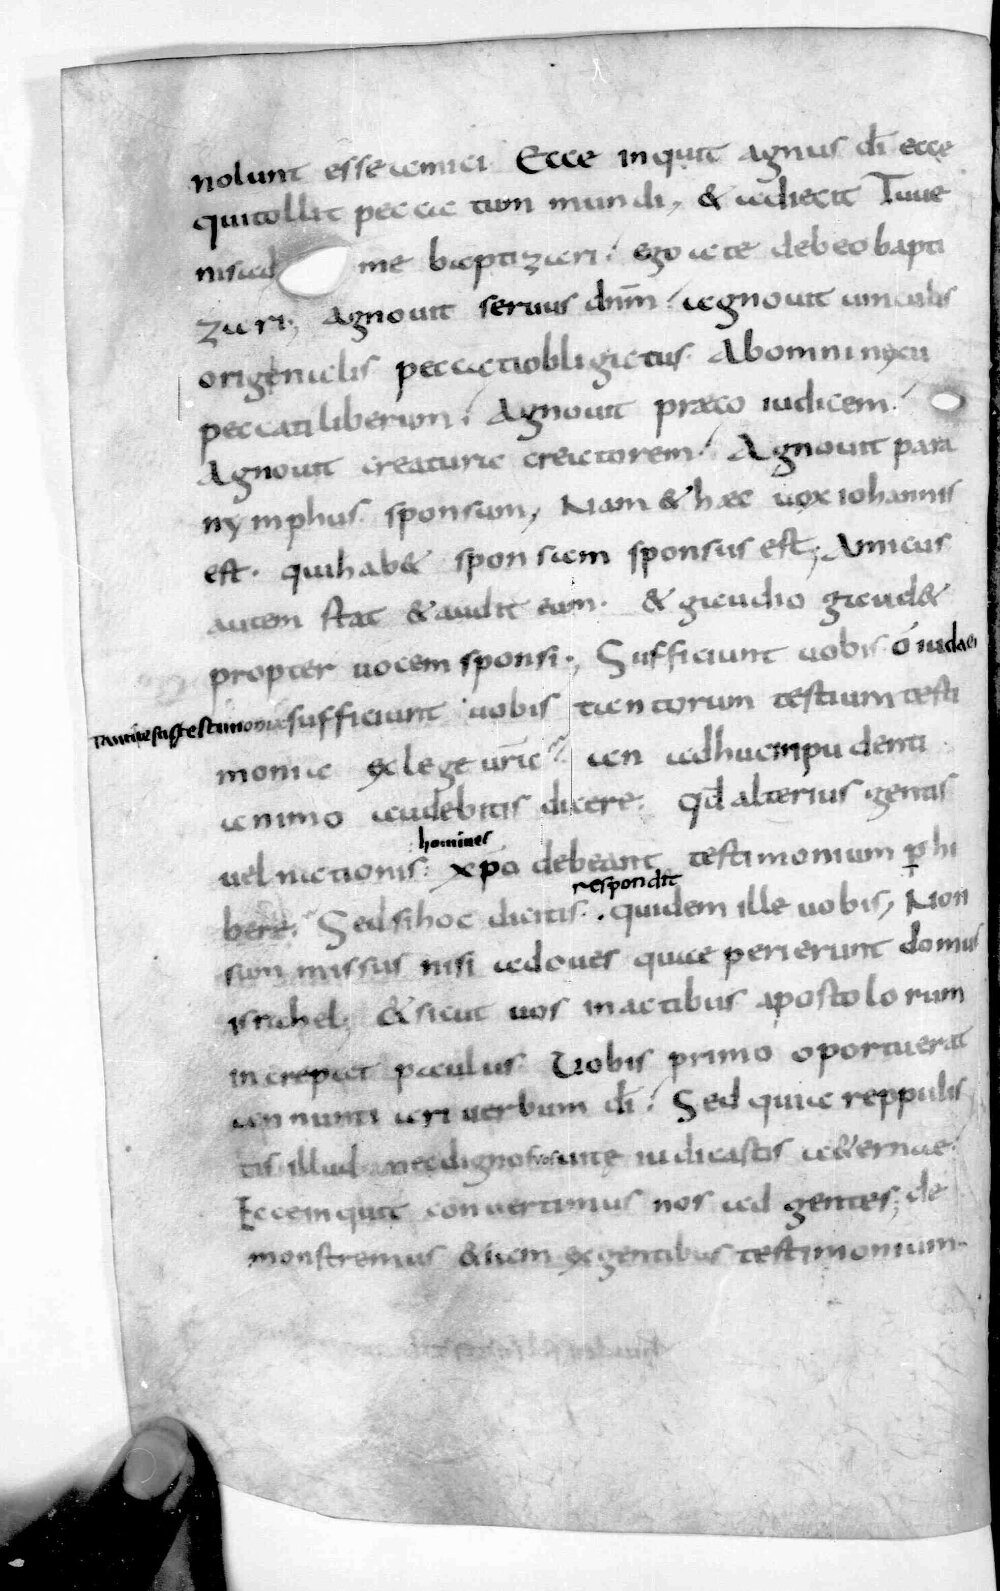 nolunt esse amici. Ecce inquit agnus dī ecce
qui tollit peccatum mundi, & adiecit Tu ue
nis ad me baptizari. ego a te debeo bapti
zari; Agnouit seruus dnm̄. agnouit uinculis
origenalis peccati obligatus. Ab omni nexu
peccati liberum. Agnouit præco iudicem.
Agnouit creatura creatorem. Agnouit para
nymphus sponsum, Nam & hæc uox iohannis
est. qui hab& sponsam sponsus est, Amicus
autem stat & audit eum. & gaudio gaud&
propter uocem sponsi., Sufficiunt uobis ō iudaei
tanti testis testimonia sufficiunt uobis tantorum testium testi
moniæ ex lege ur̄a. an adhuc inpudenti
animo audebitis dicere. qd̄ alterius gentis
homines
uel nationis. xp̄o debeant testimonium ꝑhi
respondit
bere. Sed si hoc dicitis. quidem ille uobis, Non
sum missus nisi ad oues quae perierunt domus
israhel. & sicut uos in actibus apostolorum
increpat paulus. Uobis primo oportuerat
annuntiari uerbum dī. Sed quia reppulis
tis illud nec dignos uos uita iudicastis æternae.
Ecce inquit conuertimus nos ad gentes; de
monstremus &iam ex gentibus testimonium.